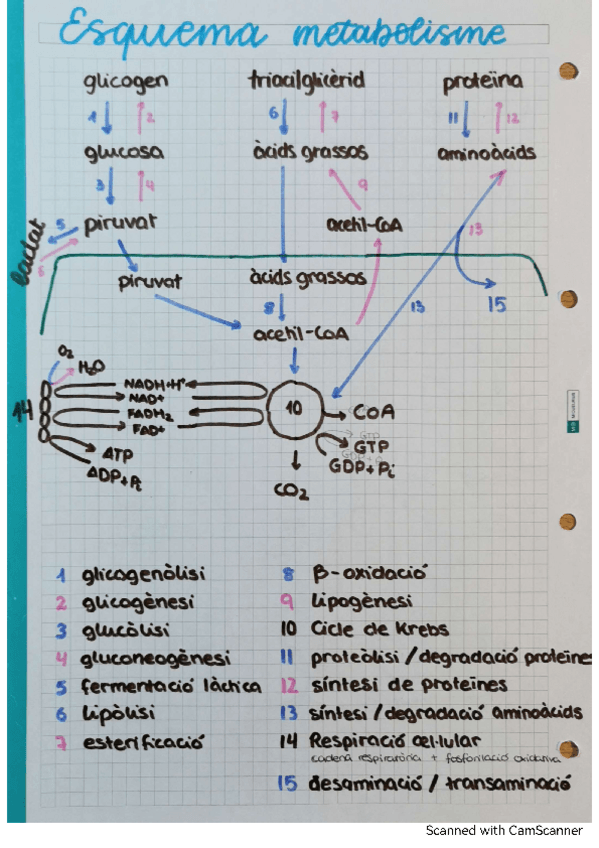 Esquema metabolisme
glicogen triacilglicèrid proteïna
1 2 6 7 11 12
glucosa àcids grassos aminoàcids
3 4 9
lactat 5 piruvat acetil-CoA 13
6
piruvat àcids grassos 15
8 13
acetil-CoA
O2
H2O
14 NADH+H+ 10 CoA
NAD+
FADH2 GTP
FAD+ GTP
ATP GDP+Pi
ADP+Pi CO2
1 glicogenòlisi
2 glicogènesi
3 glucòlisi
4 gluconeogènesi
5 fermentació làctica
6 lipòlisi
7 esterificació
8 β-oxidació
9 lipogènesi
10 Cicle de Krebs
11 proteòlisi / degradació proteïnes
12 síntesi de proteïnes
13 síntesi / degradació aminoàcids
14 Respiració cel·lular
cadena respiratòria + fosforilació oxidativa
15 desaminació / transaminació
Scanned with CamScanner